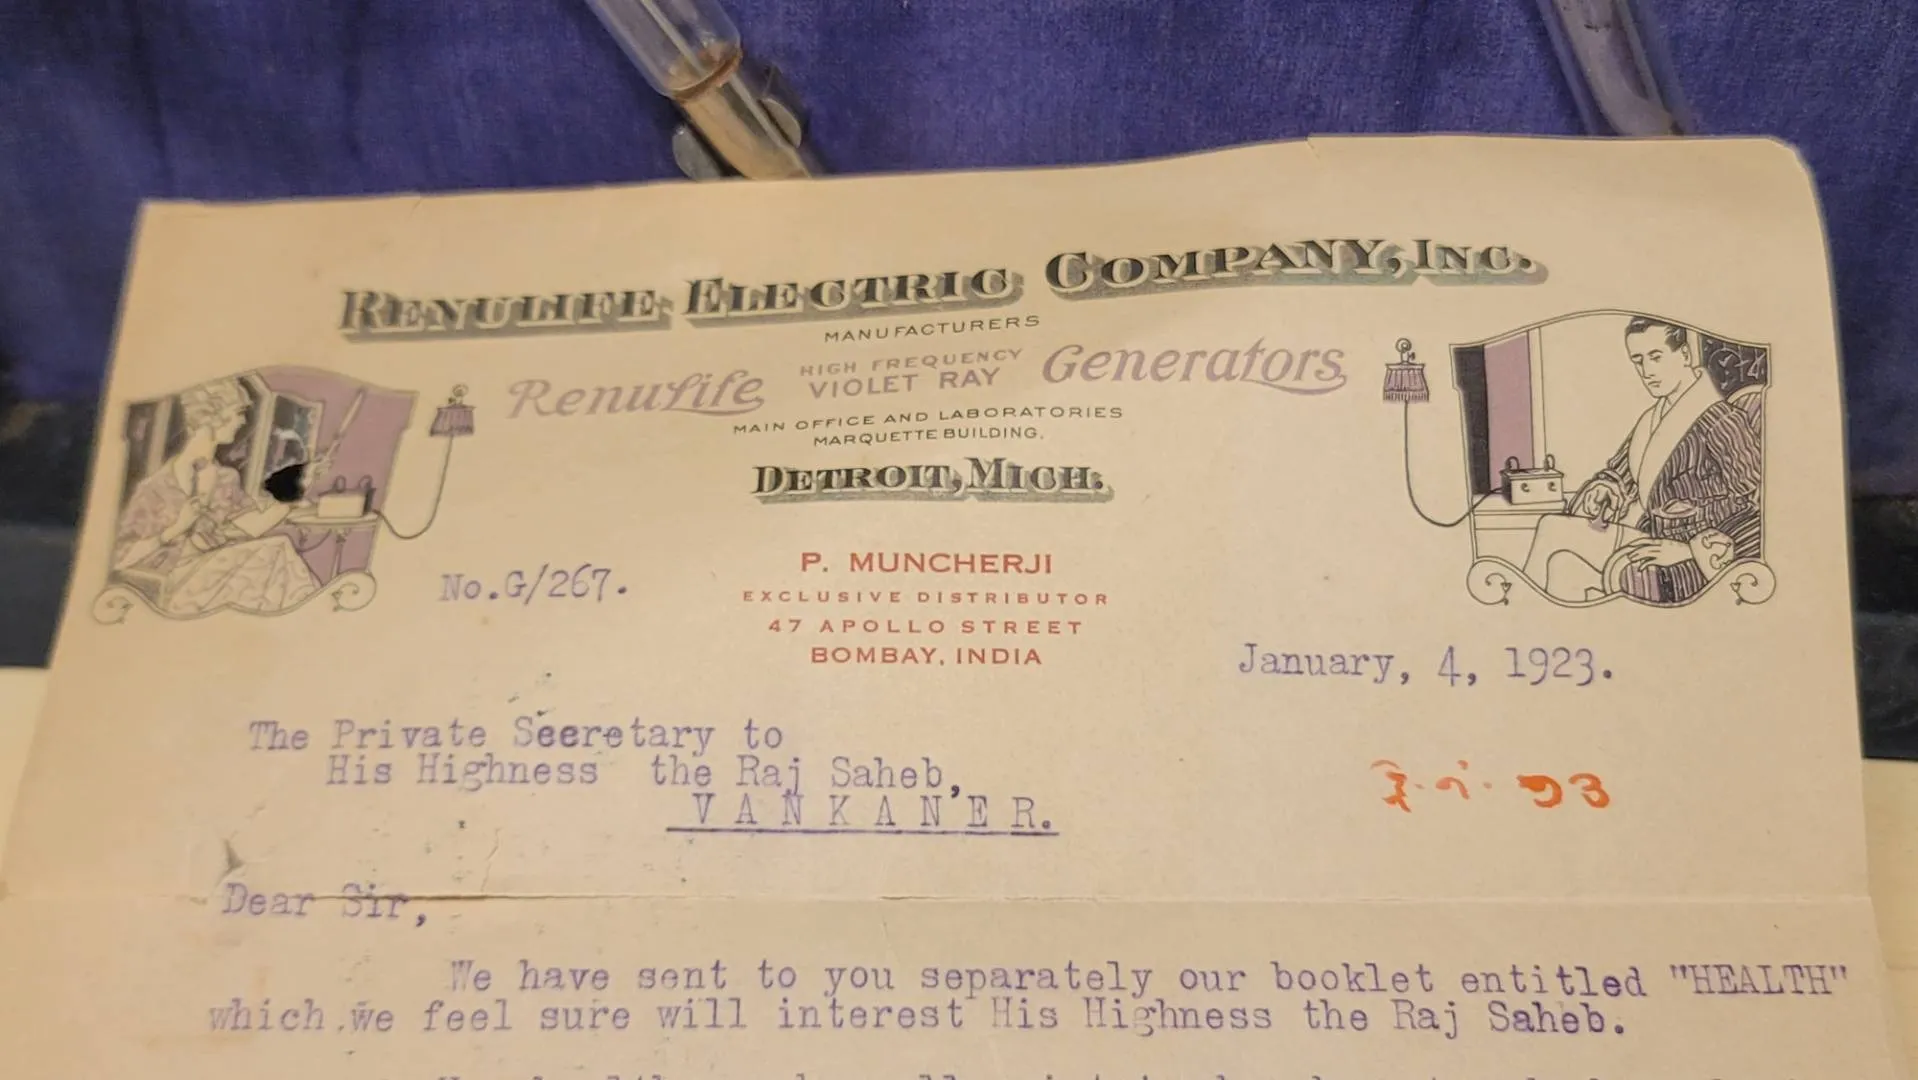 RENULIFE ELECTRIC COMPANY, INC.
MANUFACTURERS
RenuLife HIGH FREQUENCY VIOLET RAY Generators
MAIN OFFICE AND LABORATORIES
MARQUETTE BUILDING,
DETROIT, MICH.
P. MUNCHERJI
EXCLUSIVE DISTRIBUTOR
47 APOLLO STREET
BOMBAY, INDIA
No.G/267.
January, 4, 1923.
The Private Secretary to
His Highness the Raj Saheb,
VANKANER.
Dear Sir,
We have sent to you separately our booklet entitled "HEALTH"
which we feel sure will interest His Highness the Raj Saheb.